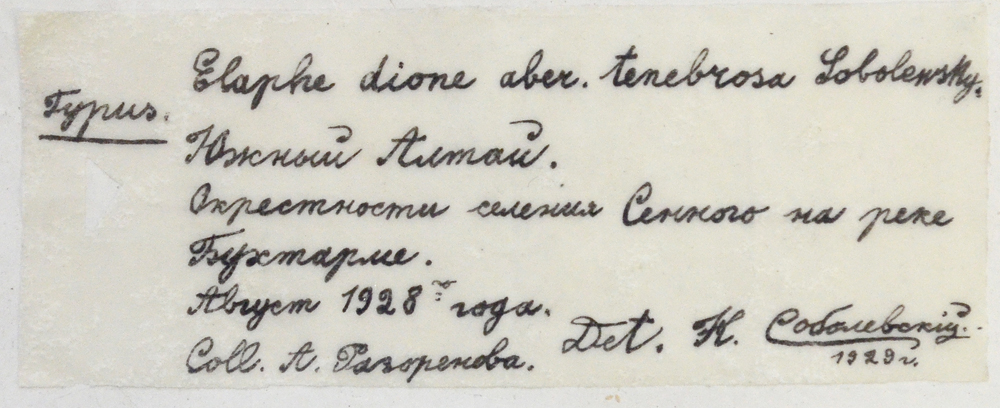 Elaphe dione aber. tenebrosa Sobolewsky.
Typus.
Южный Алтай.
Окрестности селения Сенного на реке
Бухтарме.
Август 1928 го года.
Coll. А. Разоренова.
Det. К. Соболевскій.
1929 г.